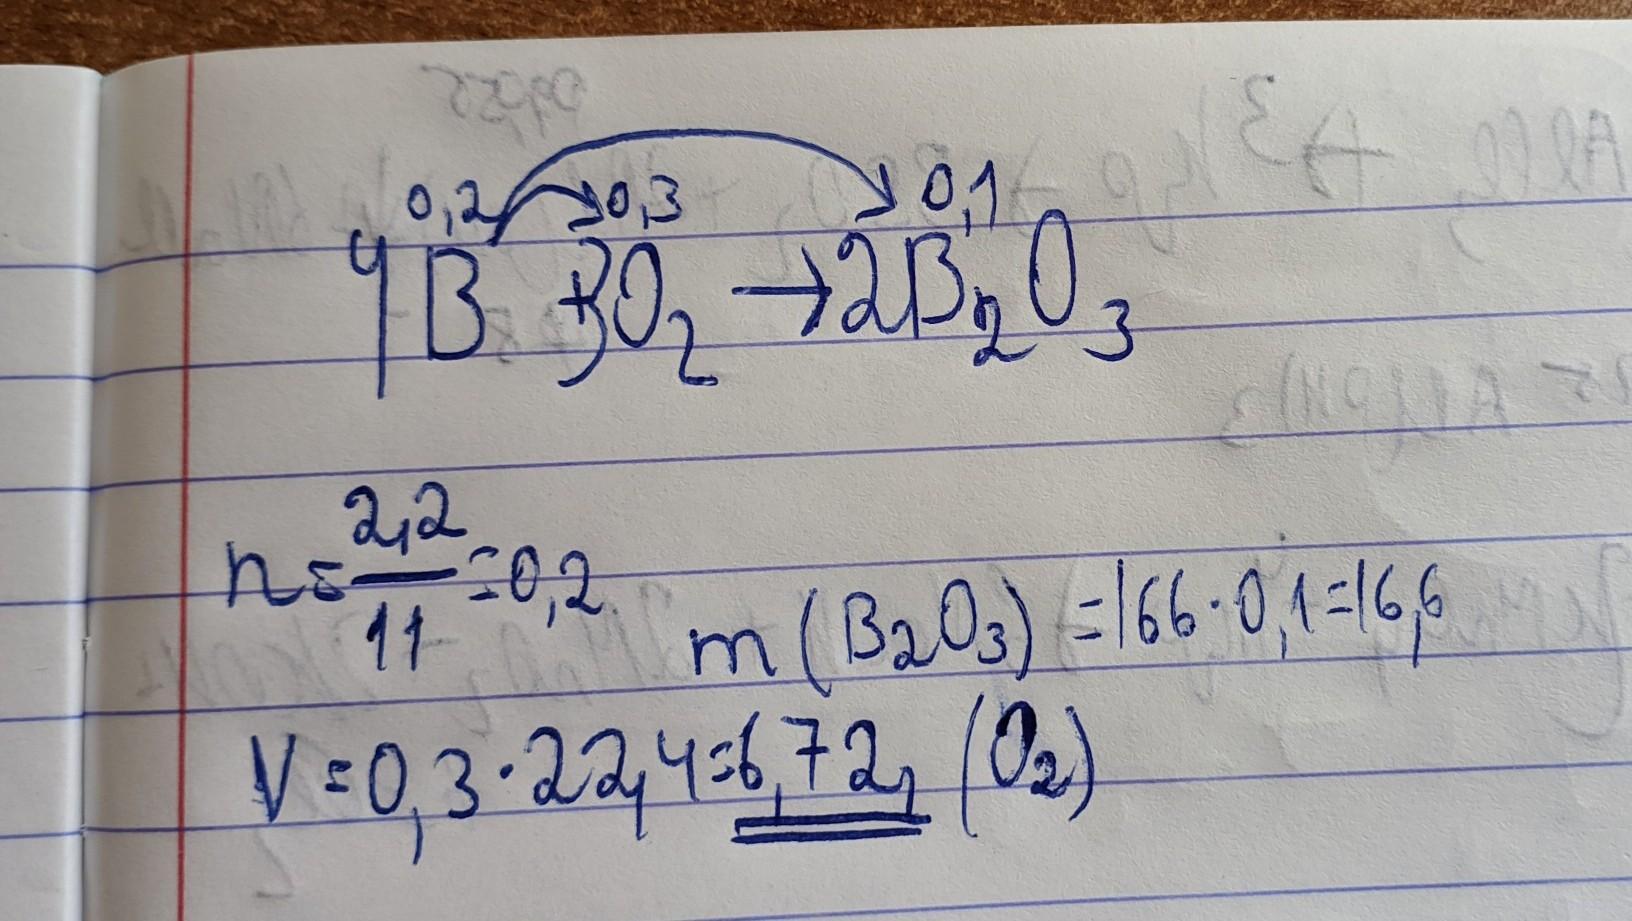 0,2 0,3 0,1
4B + 3O₂ → 2B₂O₃
n = 2,2 / 11 = 0,2
m (B₂O₃) = 166 · 0,1 = 16,6
V = 0,3 · 22,4 = 6,72, (O₂)